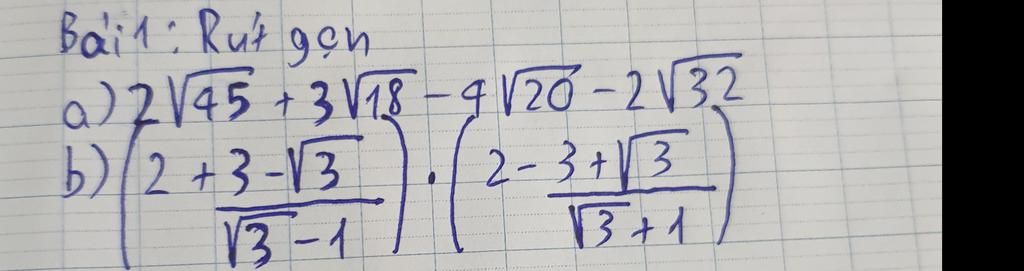 Bài 1: Rút gọn
a) 2√45 + 3√18 - 4√20 - 2√32
b) (2 + (3 - √3)/(√3 - 1)) . (2 - (3 + √3)/(√3 + 1))